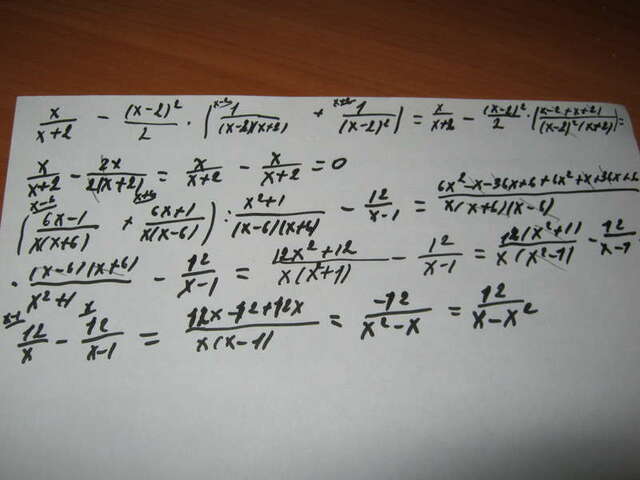 x/(x+2) - (x-2)²/2 · (1/((x-2)(x+2)) + 1/(x-2)²) = x/(x+2) - (x-2)²/2 · ((x-2+x+2)/((x-2)²(x+2))) =
x/(x+2) - 2x/(2(x+2)) = x/(x+2) - x/(x+2) = 0
((6x-1)/(x(x+6)) + (6x+1)/(x(x-6))) : (x²+1)/((x-6)(x+6)) - 12/(x-1) = (6x²-x-36x+6+6x²+x+36x+6)/(x(x+6)(x-6))
· ((x-6)(x+6))/(x²+1) - 12/(x-1) = (12x²+12)/(x(x²+1)) - 12/(x-1) = (12(x²+1))/(x(x²-1)) - 12/(x-1)
12/x - 12/(x-1) = (12x-12+12x)/(x(x-1)) = -12/(x²-x) = 12/(x-x²)